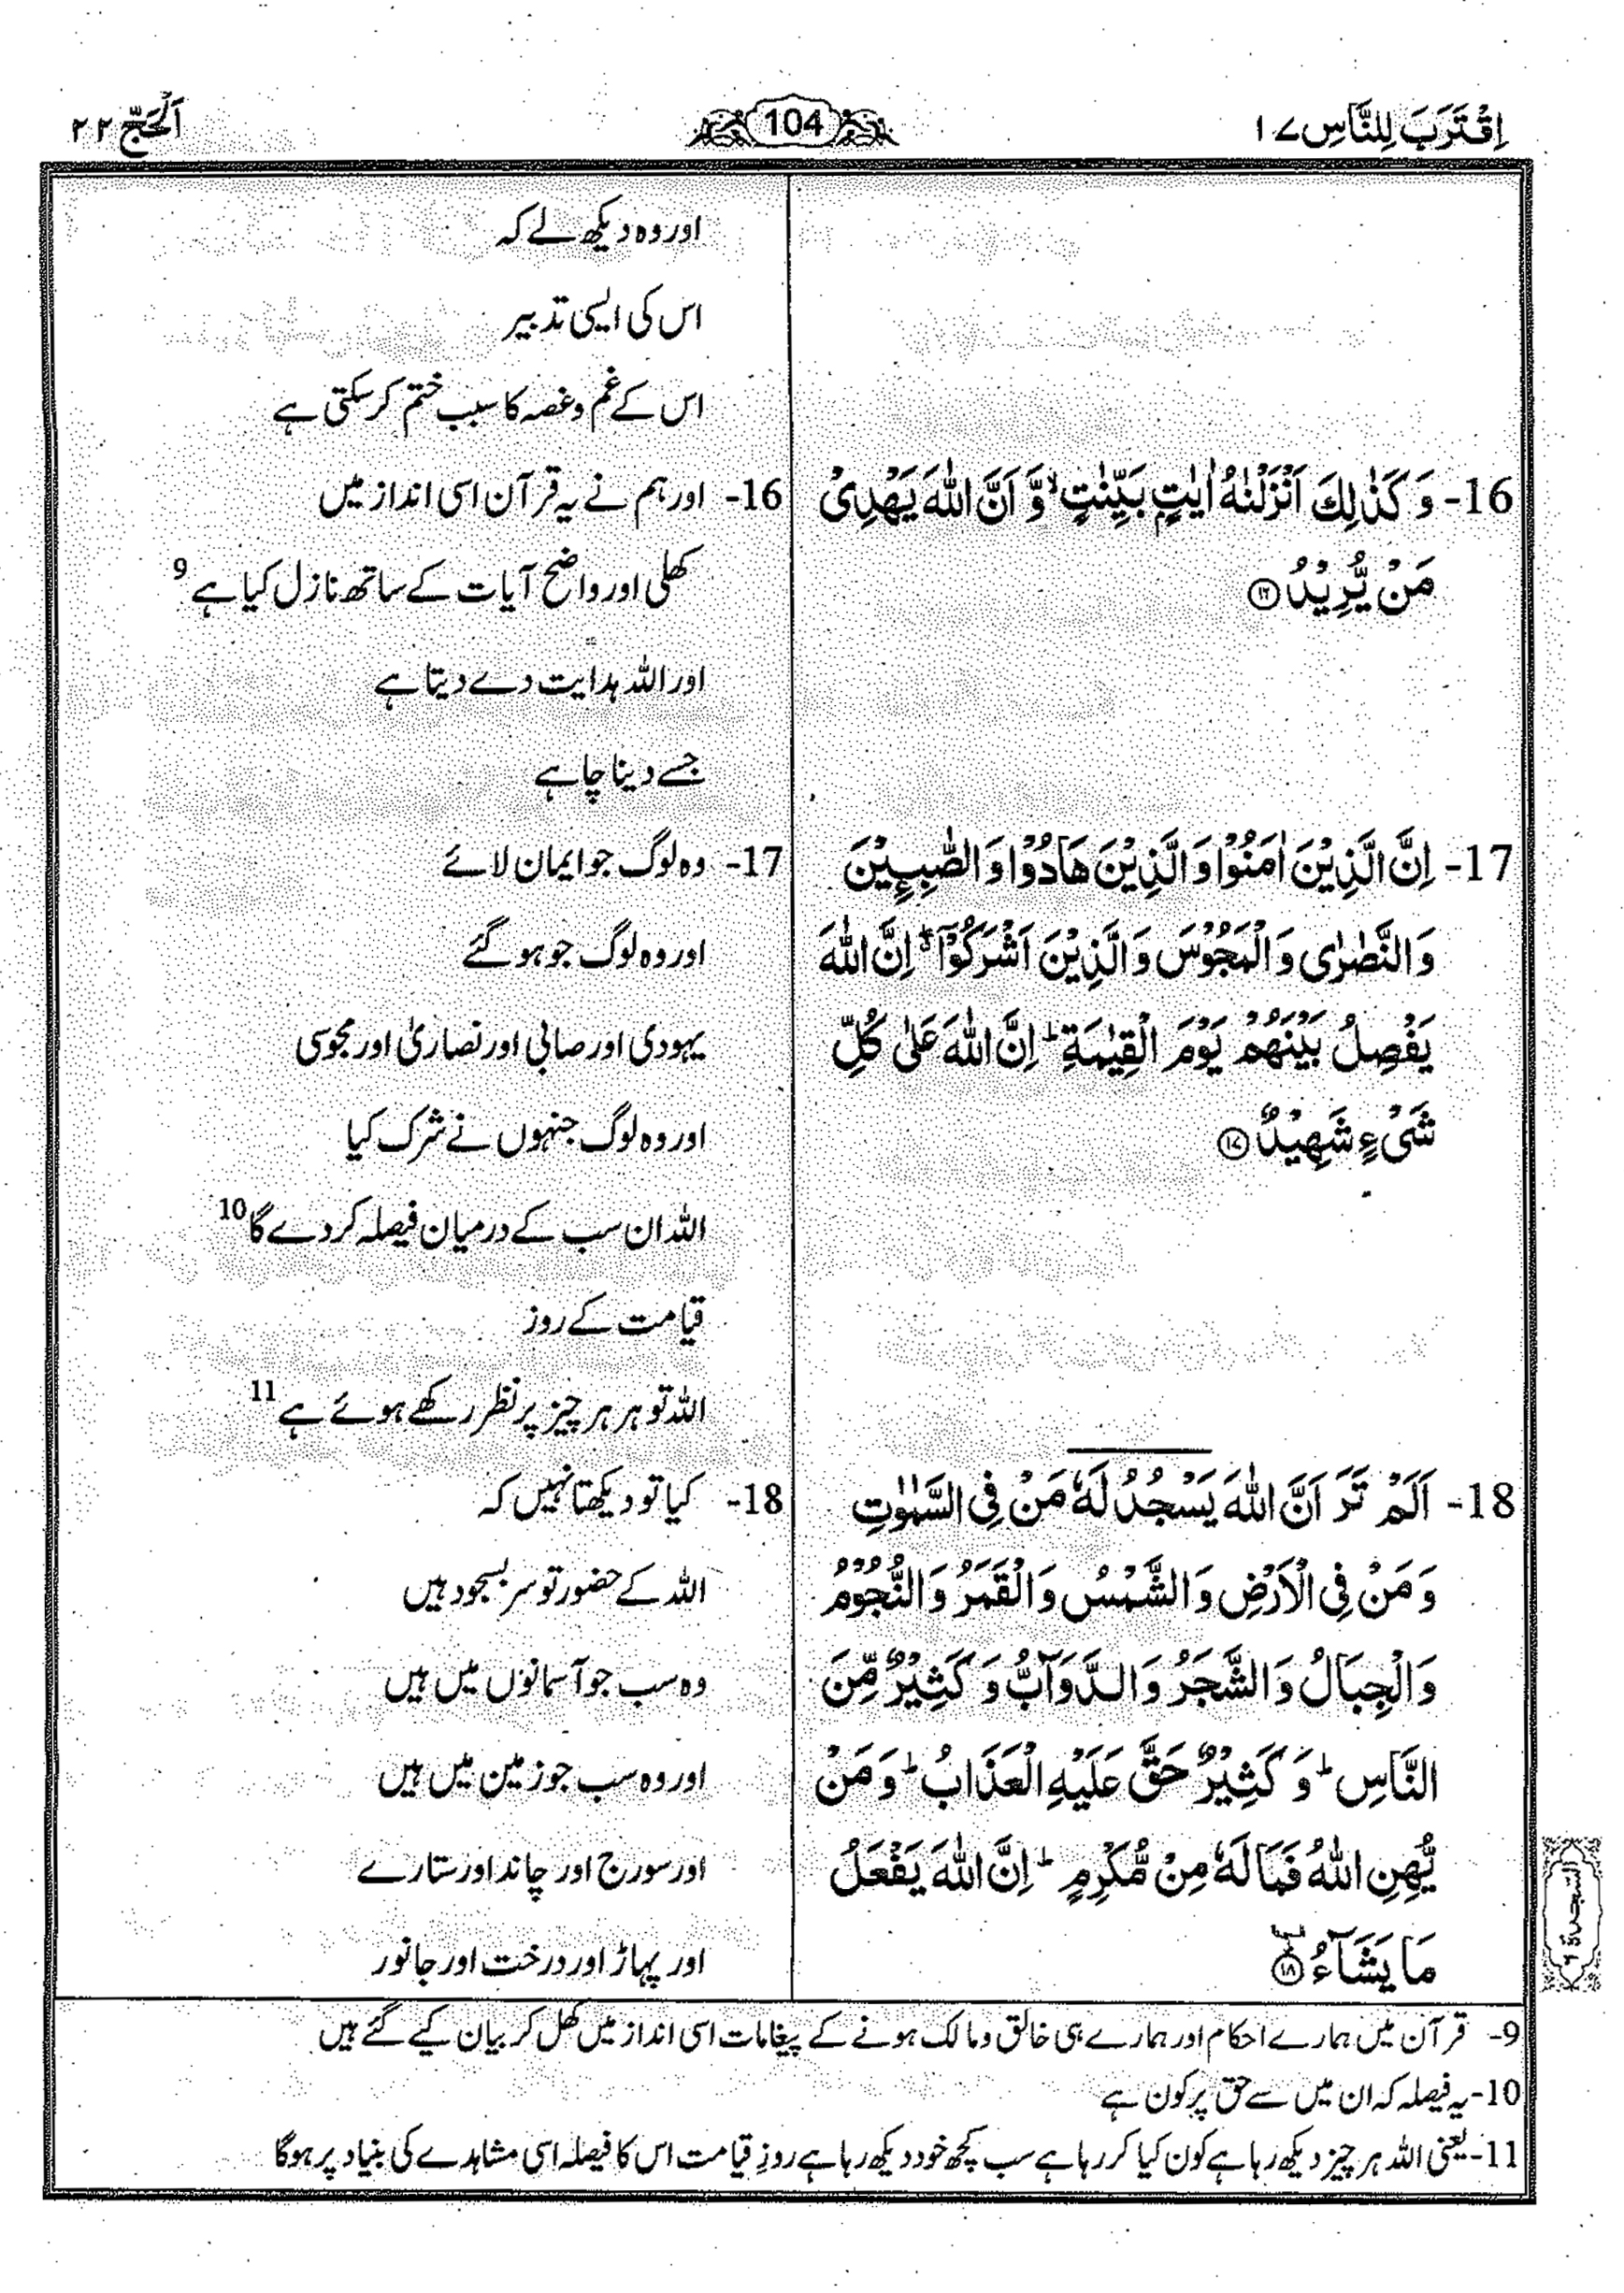 اِقْتَرَبَ لِلنَّاسِ ۱۷
104
اَلْحَجّ ۲۲
اور وہ دیکھ لے کہ
اس کی ایسی تدبیر
اس کے غم و غصہ کا سبب ختم کر سکتی ہے
16- وَ كَذٰلِكَ اَنْزَلْنٰهُ اٰيٰتٍۭ بَيِّنٰتٍ ۙ وَّ اَنَّ اللّٰهَ يَهْدِىْ
مَنْ يُّرِيْدُ ﴿۱۶﴾
16- اور ہم نے یہ قرآن اسی انداز میں
کھلی اور واضح آیات کے ساتھ نازل کیا ہے 9
اور اللہ ہدایت دے دیتا ہے
جسے دینا چاہے
17- اِنَّ الَّذِيْنَ اٰمَنُوْا وَ الَّذِيْنَ هَادُوْا وَ الصّٰبِـِٕيْنَ
وَ النَّصٰرٰى وَ الْمَجُوْسَ وَ الَّذِيْنَ اَشْرَكُوْۤا ۖ اِنَّ اللّٰهَ
يَفْصِلُ بَيْنَهُمْ يَوْمَ الْقِيٰمَةِ ؕ اِنَّ اللّٰهَ عَلٰى كُلِّ
شَىْءٍ شَهِيْدٌ ﴿۱۷﴾
17- وہ لوگ جو ایمان لائے
اور وہ لوگ جو ہو گئے
یہودی اور صابی اور نصاریٰ اور مجوسی
اور وہ لوگ جنہوں نے شرک کیا
اللہ ان سب کے درمیان فیصلہ کر دے گا 10
قیامت کے روز
اللہ تو ہر ہر چیز پر نظر رکھے ہوئے ہے 11
18- اَلَمْ تَرَ اَنَّ اللّٰهَ يَسْجُدُ لَهٗ مَنْ فِى السَّمٰوٰتِ
وَ مَنْ فِى الْاَرْضِ وَ الشَّمْسُ وَ الْقَمَرُ وَ النُّجُوْمُ
وَ الْجِبَالُ وَ الشَّجَرُ وَ الدَّوَآبُّ وَ كَثِيْرٌ مِّنَ
النَّاسِ ؕ وَ كَثِيْرٌ حَقَّ عَلَيْهِ الْعَذَابُ ؕ وَ مَنْ
يُّهِنِ اللّٰهُ فَمَا لَهٗ مِنْ مُّكْرِمٍ ؕ اِنَّ اللّٰهَ يَفْعَلُ
مَا يَشَآءُ ﴿۱۸﴾
18- کیا تو دیکھتا نہیں کہ
اللہ کے حضور تو سر بسجود ہیں
وہ سب جو آسمانوں میں ہیں
اور وہ سب جو زمین میں ہیں
اور سورج اور چاند اور ستارے
اور پہاڑ اور درخت اور جانور
السجدة ۶
9- قرآن میں ہمارے احکام اور ہمارے ہی خالق و مالک ہونے کے پیغامات اسی انداز میں کھل کر بیان کیے گئے ہیں
10- یہ فیصلہ کہ ان میں سے حق پر کون ہے
11- یعنی اللہ ہر چیز دیکھ رہا ہے کون کیا کر رہا ہے سب کچھ خود دیکھ رہا ہے روزِ قیامت اس کا فیصلہ اسی مشاہدے کی بنیاد پر ہوگا